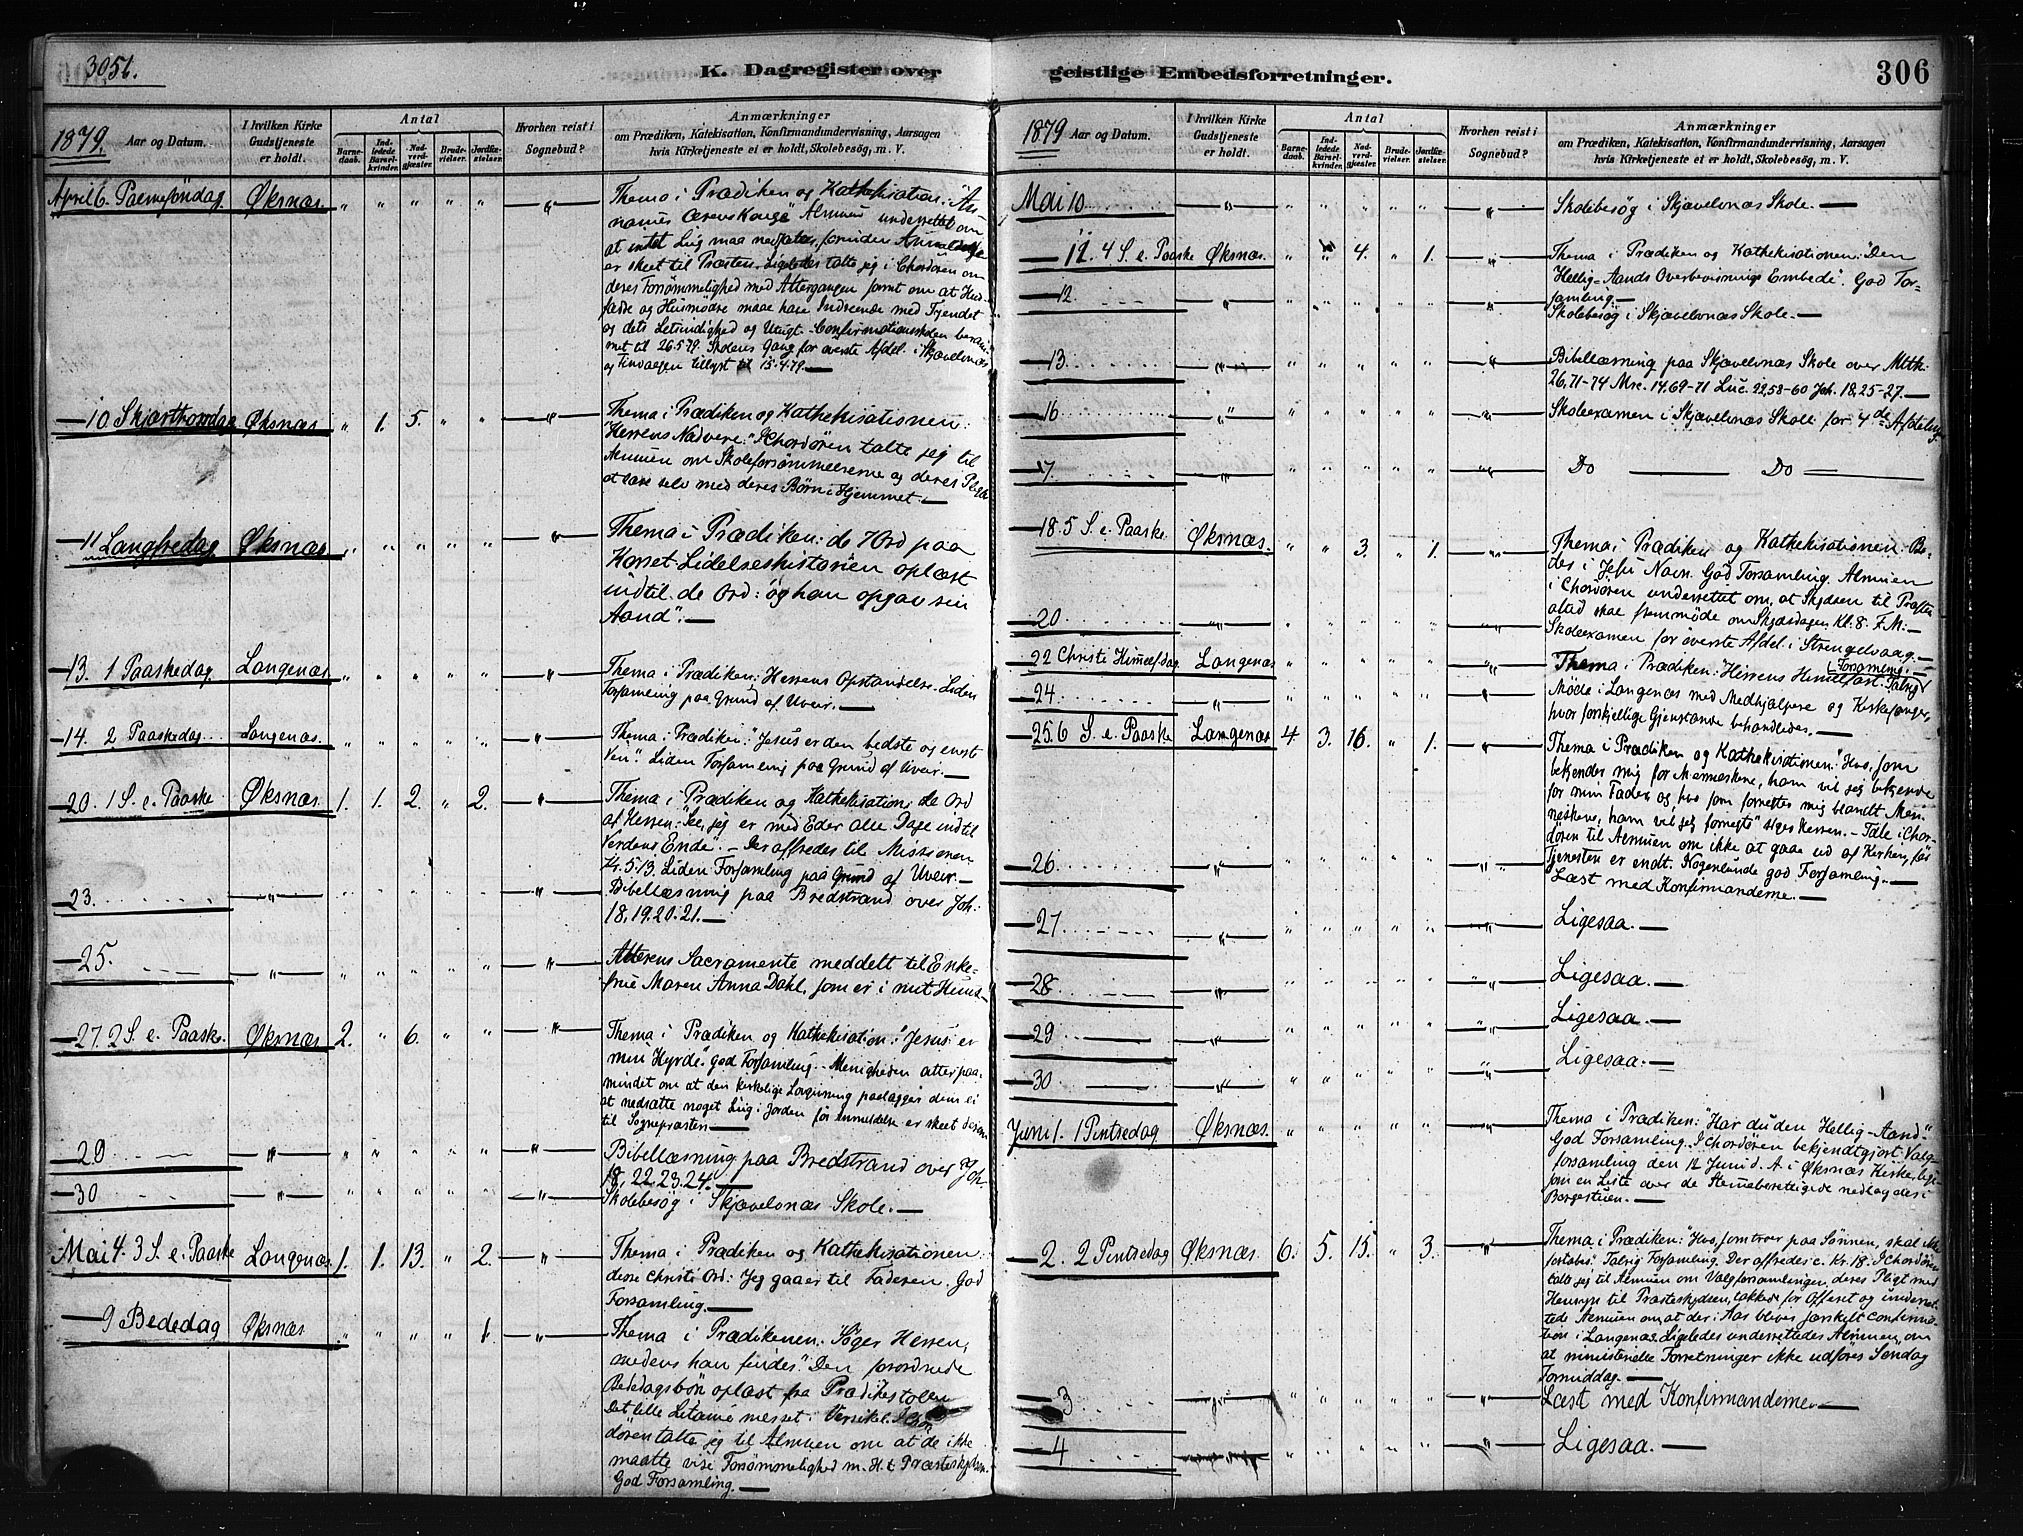 305b.
K. Dagregister over
1879.
Aar og Datum.
I hvilken Kirke
Gudstjeneste
er holdt.
Antal
Barne-
daab.
Ind-
ledede
Barsel-
kvinder.
Nad-
verd-
gjæster.
Brude-
vielser.
Jordfæ-
stelser.
Hvorhen reist i
Sognebud?
Anmærkninger
om Prædiken, Katekisation, Konfirmandundervisning, Aarsagen
hvis Kirketjeneste ei er holdt, Skolebesøg, m. V.
April 6. Palmesöndag Øksnæs. " " " " " "
Thema i Prædiken og Kathekisation: "Ar-
mannes Ærens Konge" Almuen underrettet om
at intet Lig maa nedsættes, forinden Anmeldelse
er skeet til Præsten. Ligeledes talte jeg i Chordören om
deres Forsömmelighed med Altergangen samt om at Hus-
fædre og Husmödre maae have Indseende med Tyendet
og dets Letsindighed og Utugt. Confirmationsskolen beram-
met til 26.5.79. Skolens Gang for överste Afdel. i Skjævelvnæs
og Tindaagen tillyst til 15.4.79.—
— 10 Skjærthorsdag Øksnæs " 1. 5. " " "
Thema i Prædiken og Kathekisationen:
"Herrens Nadvere." I Chordören talte jeg til
Almuen om Skoleforsömmelserne og deres Pligt
at læse selv med deres Börn i Hjemmet.—
— 11 Langfredag Øksnæs " " " " " "
Thema i Prædiken: de 7 Ord paa
Korset. Lidelseshistorien oplæst
indtil de Ord: "og han opgav sin
Aand".—
— 13. 1 Paaskedag Langenæs " " " " " "
Thema i Prædiken: Herrens Opstandelse. Liden
Forsamling paa Grund af Uveir.—
— 14. 2 Paaskedag Langenæs. " " " " " "
Thema i Prædiken: "Jesus er den bedste og eneste
Ven". Liden Forsamling paa Grund af Uveir.—
— 20. 1 S. e. Paaske Øksnæs. 1. 1. 2. " 2. "
Thema i Prædiken og Kathekisation: de Ord
af Herren: "See, jeg er med Eder alle Dage indtil
Verdens Ende". – Der offredes til Missionen
Kr. 5.13. Liden Forsamling paa Grund af Uveir.—
— 23. — " — " " " " " "
Bibellæsning paa Bredstrand over Joh:
18, 19.20.21.—
— 25. — " — " " " " " "
Alterens Sacramente meddelt til Enke-
frue Maren Anna Dahl, som er i mit Huus—
— 27. 2 S. e. Paaske. Øksnæs 2. " 6. " " "
Thema i Prædiken og Kathekisation: "Jesus er
min Hyrde." god Forsamling. – Menigheden atter paa-
mindet om at den kirkelige Lovgivning paalægger dem ei
at nedsætte noget Lig i Jorden för Anmeldelse er skeet derom
til Sognepræsten—
— 29 — " — " " " " " "
Bibellæsning paa Bredstrand over Joh.
18, 22.23.24.—
— 30 — " — " " " " " "
Skolebesøg i Skjævelvnæs Skole.—
Mai 4. 3 S. e. Paaske Langenæs. 1. 1. 13. " 2. "
Thema i Prædiken og Kathekisationen:
disse Christi Ord: Jeg gaaer til Faderen. God
Forsamling.—
— 9 Bededag Øksnæs " " " " 1. "
Thema i Prædikenen. "Söger Herren,
medens han findes." Den forordnede
Bededagsbön oplæst fra Prædikestolen
Det lille Letanie messet. Versikel. I Chor
dören talte jeg til Almuen om at de ikke
maatte vise Forsömmelighed m. H. t. Præsteskydsen.
God Forsamling.—
geistlige Embedsforretninger.
306
1879
Aar og Datum.
I hvilken Kirke
Gudstjeneste
er holdt.
Antal
Barne-
daab.
Ind-
ledede
Barsel-
kvinder.
Nad-
verd-
gjæster.
Brude-
vielser.
Jordfæ-
stelser.
Hvorhen reist i
Sognebud?
Anmærkninger
om Prædiken, Katekisation, Konfirmandundervisning, Aarsagen
hvis Kirketjeneste ei er holdt, Skolebesøg, m. V.
Mai 10 — " — " " " " " "
Skolebesøg i Skjævelvnæs Skole.—
11. 4 S. e. Paaske Øksnæs. " " 4. " 1. "
Thema i Prædiken og Kathekisationen: "Den
Hellig-Aands Overbevisnings Embede". God For-
samling.—
— 12. — " — " " " " " "
Skolebesøg i Skjævelvnæs Skole.—
— 13. — " — " " " " " "
Bibellæsning paa Skjævelvnæs Skole over Mtth.
26, 71–74 Mrc. 14.69–71 Luc. 22,58–60 Joh. 18, 25–27.—
— 16 — " — " " " " " "
Skoleexamen i Skjævelvnæs Skole for 4de Afdeling
— 17. — " — " " " " " "
Do — Do —
— 18. 5 S. e. Paaske Øksnæs. " " 3. " 1. "
Thema i Prædiken og Kathekisationen. Be-
des i Jesu Navn. God Forsamling. Almuen
i Chordören underrettet om, at Skydsen til Præsten
altid skal fremmöde om Skydsdagen Kl. 8. F.M.—
— 20 — " — " " " " " "
Skoleexamen for överste Afdel. i Strengelvaag.—
— 22 Christi Himmelfdag Langenæs " " " " " "
Thema i Prædiken: Herrens Himmelfart. Talrig
(Forsamling.
— 24. — " — " " " " " "
Möde i Langenæs med Medhjælpere og Kirkesanger,
hvor forskjellige Gjenstande behandledes.—
— 25. 6 S. e. Paaske Langenæs 4. 3. 16. " 1. "
Thema i Prædiken og Kathekisationen: "Hvo, som
bekjender mig for Menneskene, ham vil jeg bekjende
for min Fader, og hvo som fornegter mig blandt Men-
neskene, ham vil jeg fornegte" siger Herren. – Tale i Chor-
dören til Almuen om ikke at gaae ud af Kirken, för
Tjenesten er endt. Nogenlunde god Forsamling.—
— 26 — " — " " " " " "
Læst med Konfirmanderne.—
— 27 — " — " " " " " "
Ligesaa.—
— 28 — " — " " " " " "
Ligesaa.—
— 29 — " — " " " " " "
Ligesaa.—
— 30 — " — " " " " " "
Ligesaa.—
Juni 1. 1 Pintsedag Øksnæs. " " " " " "
Thema i Prædiken: "Har du den Hellig-Aand".
God Forsamling. I Chordören bekjendtgjort Valg-
forsamling den 12 Juni d. A. i Øksnæs Kirke, lige
som en Liste over de Stemmeberettigede nedlagdes i
Borgestuen.—
— 2. 2 Pintsedag Øksnæs. 6. 5. 15. " 3. "
Thema i Prædiken: "Hvo, som troer paa Sönnen, skal ikke
fortabes". Talrig Forsamling. Der offredes c. Kr. 18. I Chordören
talte jeg til Almuen om Valgforsamlingen, deres Pligt med
Hensyn til Præsteskydsen, takkede for Offeret og underret-
tede Almuen om at der i Aar bliver særskilt confirma-
tion i Langenæs. Ligeledes underrettedes Almuen om
at ministerielle Forretninger ikke udföres Söndag
Formiddag.—
— 3 — " — " " " " " "
Læst med Konfirmanderne—
— 4 — " — " " " " " "
Ligesaa.—